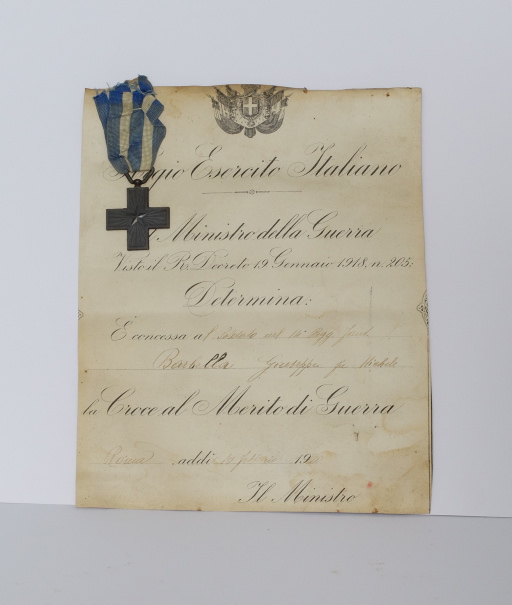 Regio Esercito Italiano
Il Ministro della Guerra
Visto il R. Decreto 19 Gennaio 1918, n. 205:
Determina:
È concessa al Soldato nel Regg. Giuseppe fu Michele
la Croce al Merito di Guerra
addì 19
Il Ministro